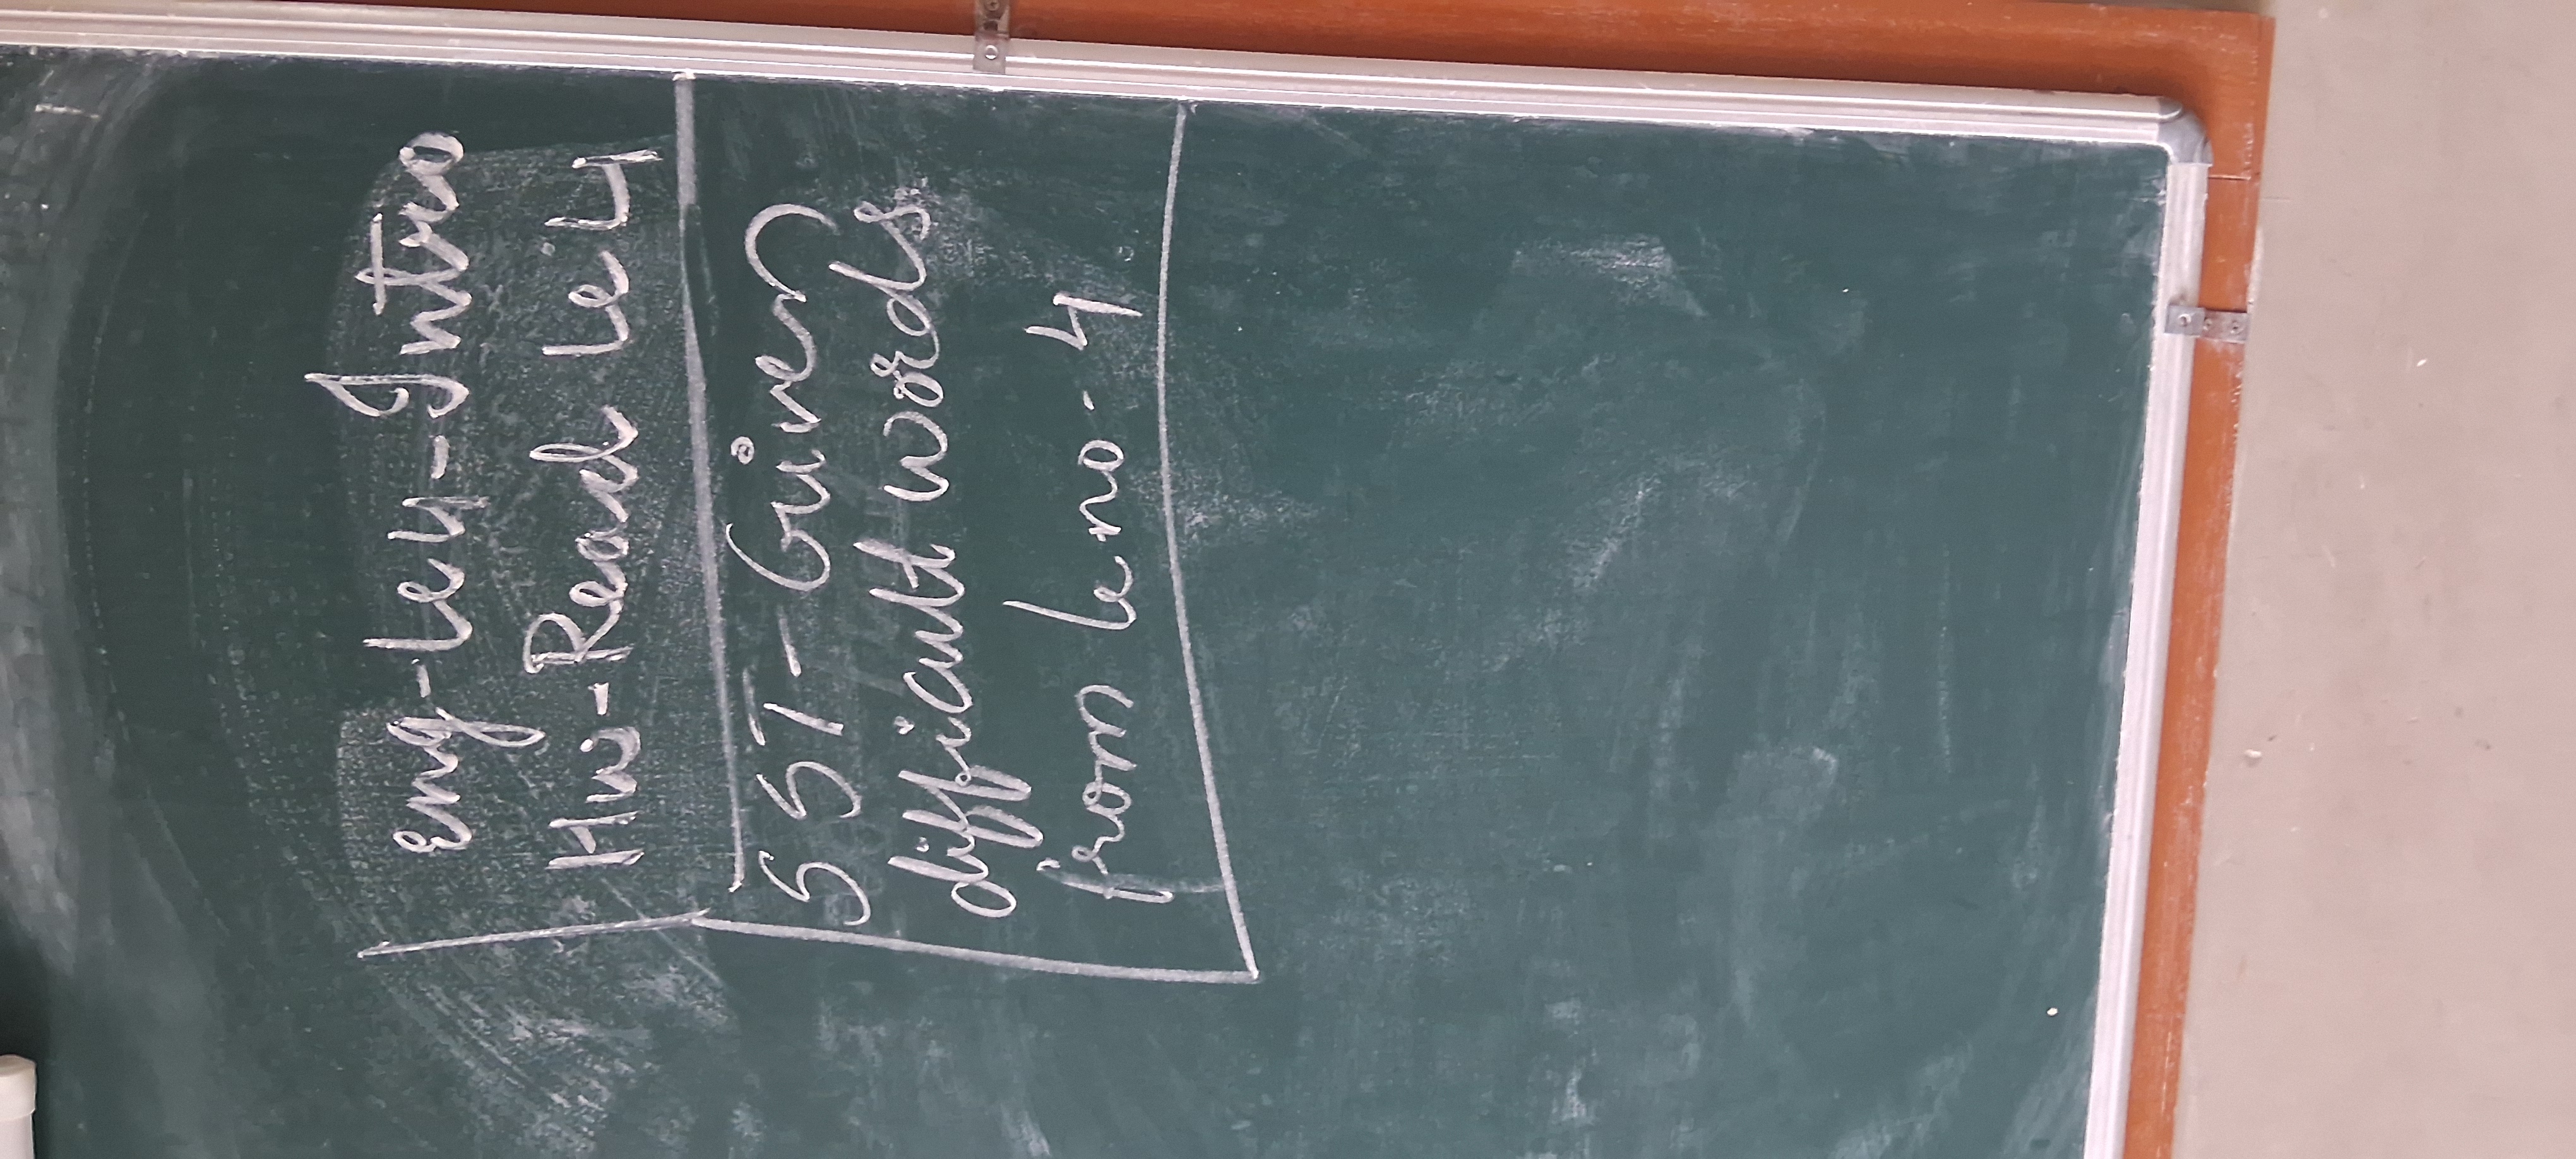 Eng-Le4-Intro
Hw-Read Le:4
SST-Given
difficult words
from Le no-4